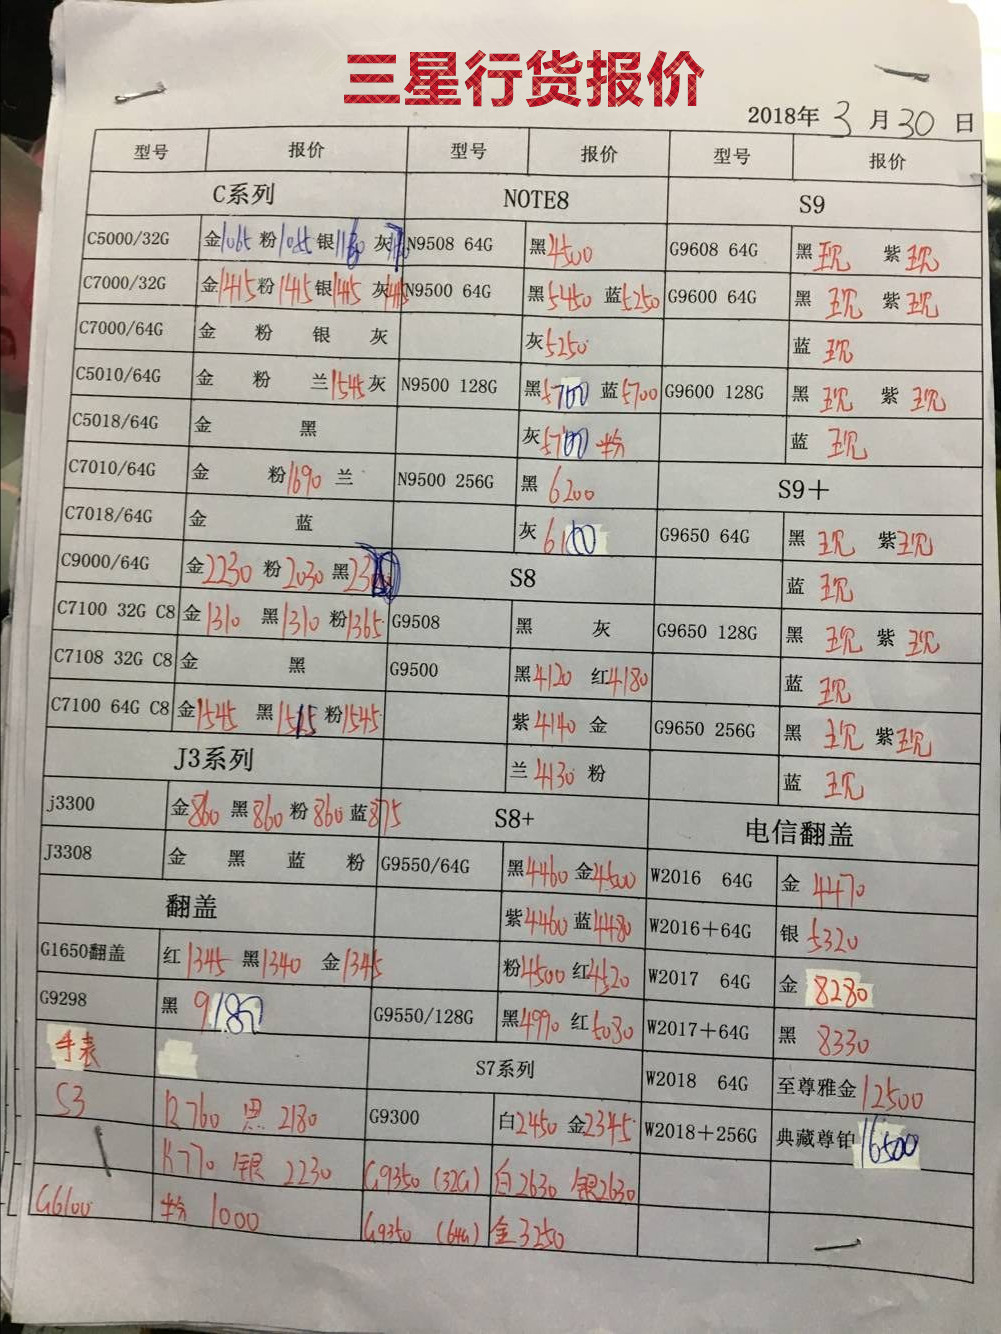 三星行货报价
2018年 3 月 30 日
型号 报价 型号 报价 型号 报价
C系列 NOTE8 S9
C5000/32G 金1065 粉1055 银 灰 N9508 64G 黑4500 G9608 64G 黑 现 紫 现
C7000/32G 金1415 粉1415 银1415 灰1415 N9500 64G 黑5450 蓝5250 G9600 64G 黑 现 紫 现
C7000/64G 金 粉 银 灰 灰5250 蓝 现
C5010/64G 金 粉 兰1545 灰 N9500 128G 黑5700 蓝5700 G9600 128G 黑 现 紫 现
C5018/64G 金 黑 灰5700 粉 蓝 现
C7010/64G 金 粉1690 兰 N9500 256G 黑 6200 S9+
C7018/64G 金 蓝 灰 6100 G9650 64G 黑 现 紫 现
C9000/64G 金2230 粉2030 黑 S8 蓝 现
C7100 32G C8 金1310 黑1310 粉1365 G9508 黑 灰 G9650 128G 黑 现 紫 现
C7108 32G C8 金 黑 G9500 黑4120 红4180 蓝 现
C7100 64G C8 金1545 黑1515 粉1545 紫4140 金 G9650 256G 黑 现 紫 现
J3系列 兰4130 粉 蓝 现
j3300 金860 黑860 粉860 蓝875 S8+ 电信翻盖
J3308 金 黑 蓝 粉 G9550/64G 黑4460 金4500 W2016 64G 金 4470
翻盖 紫4460 蓝4480 W2016+64G 银 5320
G1650翻盖 红1345 黑1340 金1345 粉4500 红4520 W2017 64G 金 8280
G9298 黑 9180 G9550/128G 黑4990 红5030 W2017+64G 黑 8330
手表 S7系列 W2018 64G 至尊雅金12500
S3 R760 黑 2180 G9300 白2450 金2345 W2018+256G 典藏尊铂16500
R770 银 2230 G9350 (32G) 白2630 银2630
G6100 粉 1000 G9350 (64G) 金3250